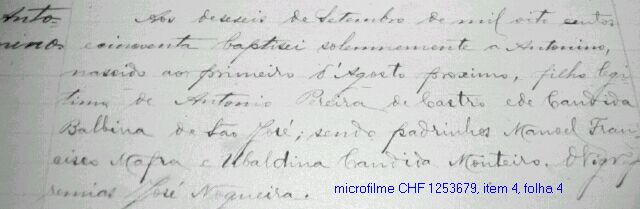 Anto- Aos deseseis de Setembro de mil oito centos
nino e cincoenta baptisei solemnemente a Antonino,
nascido ao primeiro d'Agosto proximo, filho legi
timo de Antonio Pereira de Castro e de Candida
Balbina de São José; sendo padrinhos Manoel Fran-
cisco Mafra e Ubaldina Candida Monteiro. O Vigrº
Jeremias José Nogueira.
microfilme CHF 1253679, item 4, folha 4